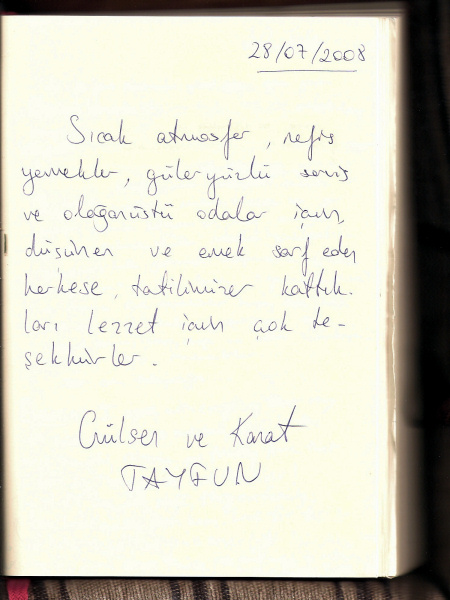 28/07/2008
Sıcak atmosfer, nefis
yemekler, güleryüzlü servis
ve olağanüstü odalar için,
düşünen ve emek sarf eden
herkese, tatilimize kattık-
ları lezzet için çok te-
şekkürler.
Gülsen ve Kanat
TAYFUN